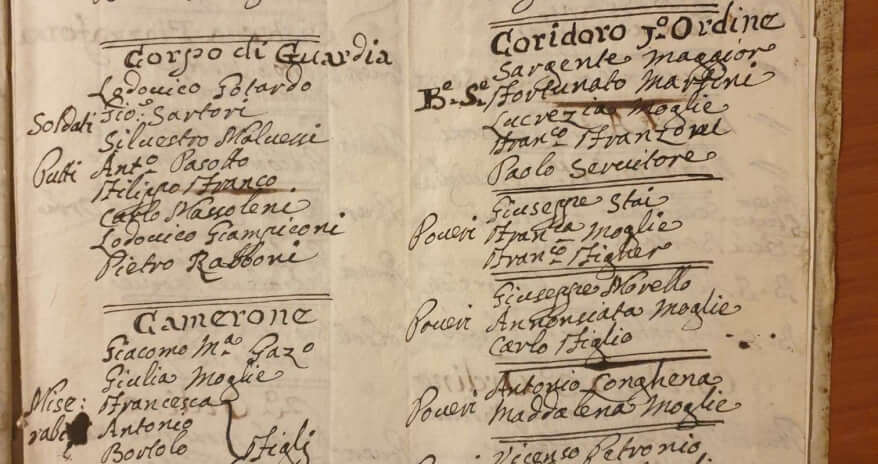 Corpo di Guardia
Lodovico Gotardo
Soldati Gio: Sartori
Silvestro Malvessi
Putti Ant.o Pasotto
Filippo Franco
Carlo Massoleni
Lodovico Giampiconi
Pietro Rabboni
Camerone
Giacomo M.a Gazo
Giulia Moglie
Mise: Francesca
Antonio
Bortolo Figli
Coridoro p.o Ordine
Sargente Maggior
B.e S.e Fortunato Martini
Lucrezia Moglie
Fran.co
Paolo Servitore
Giuseppe Stai
Poveri Fran.ca Moglie
Fran.co
Giuseppe Morello
Poveri Annonsiata Moglie
Carlo Figlio
Antonio Longhena
Poveri Maddalena Moglie
Vicenso Petronio